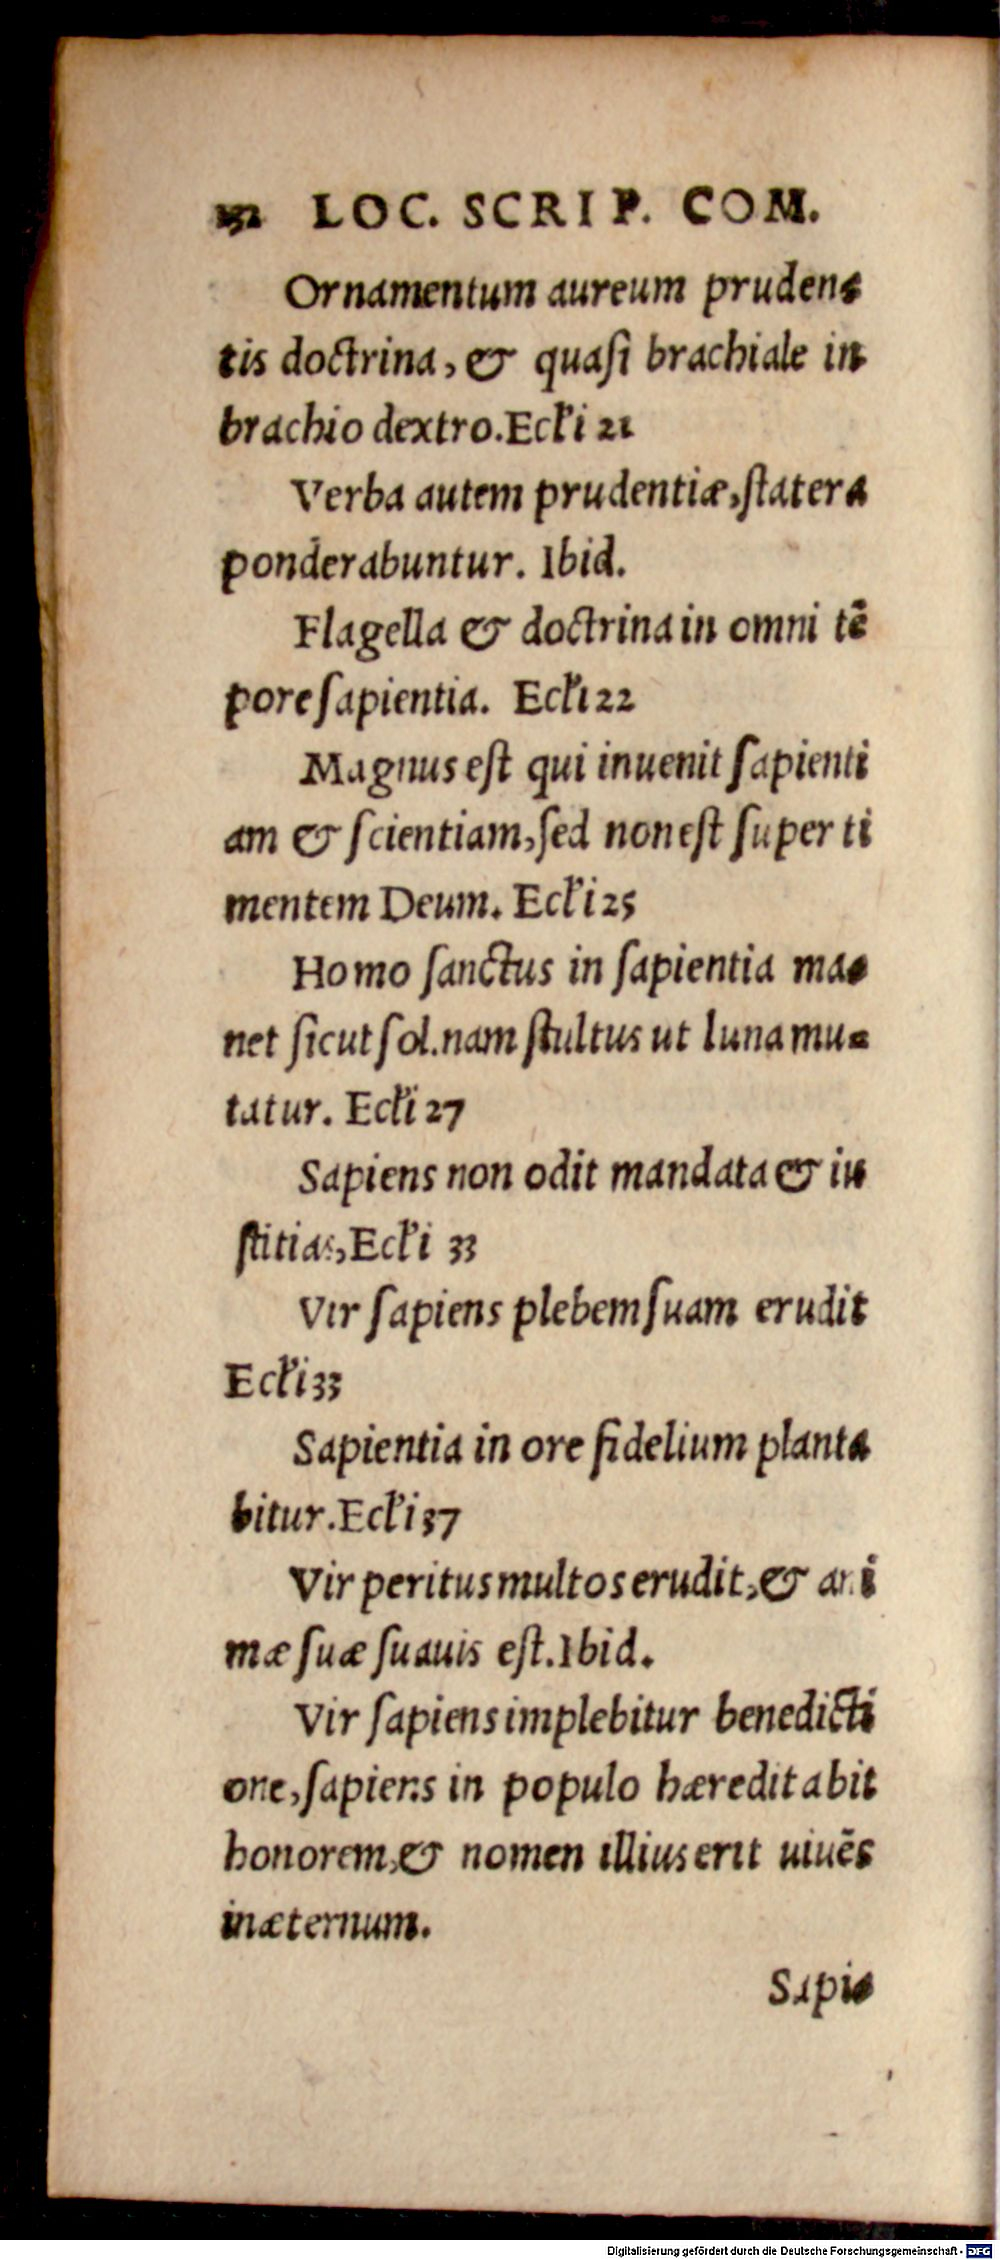 152 LOC. SCRIP. COM.
Ornamentum aureum pruden⸗
tis doctrina, & quaſi brachiale in
brachio dextro. Ecl̕i 21
Verba autem prudentiæ, ſtatera
ponderabuntur. Ibid.
Flagella & doctrina in omni tē
pore ſapientia. Ecl̕i 22
Magnus eſt qui inuenit ſapienti
am & ſcientiam, ſed non eſt ſuper ti
mentem Deum. Ecl̕i 25
Homo ſanctus in ſapientia ma⸗
net ſicut ſol. nam ſtultus ut luna mu⸗
tatur. Ecl̕i 27
Sapiens non odit mandata & iu
ſtitias, Ecl̕i 33
Vir ſapiens plebem ſuam erudit
Ecl̕i 33
Sapientia in ore fidelium planta
bitur. Ecl̕i 37
Vir peritus multos erudit, & ani
mæ ſuæ ſuauis eſt. Ibid.
Vir ſapiens implebitur benedicti
one, ſapiens in populo hæreditabit
honorem, & nomen illius erit uiuēs
in æternum.
Sapiē
Digitalisierung gefördert durch die Deutsche Forschungsgemeinschaft - DFG